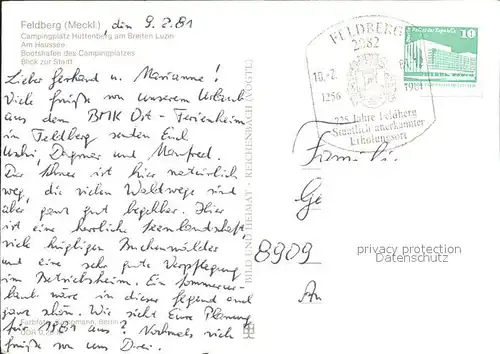 Feldberg (Meckl.) den 9.2.81
Campingplatz Hüttenberg am Breiten Luzin
Am Haussee
Bootshafen des Campingplatzes
Blick zur Stadt
Lieber Gerhard u. Marianne!
Viele Grüße von unserem Urlaub
aus dem BMK Ost - Ferienheim
in Feldberg senden Euch
Uschi, Dagmar und Manfred.
Der Schnee ist hier natürlich
weg, die vielen Waldwege sind
aber ganz gut begehbar. Hier
ist eine herrliche Seenlandschaft
viele hügligen Buchenwälder
und eine sehr gute Verpflegung
im Betriebsheim. Ein Sommerur-
laub wäre in dieser Gegend auch
ganz schön. Wie sieht Eure Planung
für 1981 aus? Nochmals viele
Grüße von uns Drei.
BILD UND HEIMAT · REICHENBACH (VOGTL)
FELDBERG
2082
10.-2.
1981
1256
725 Jahre Feldberg
Staatlich anerkannter
Erholungsort
DDR
10
Famili
Ge
8909
An
privacy protection
Datenschutz